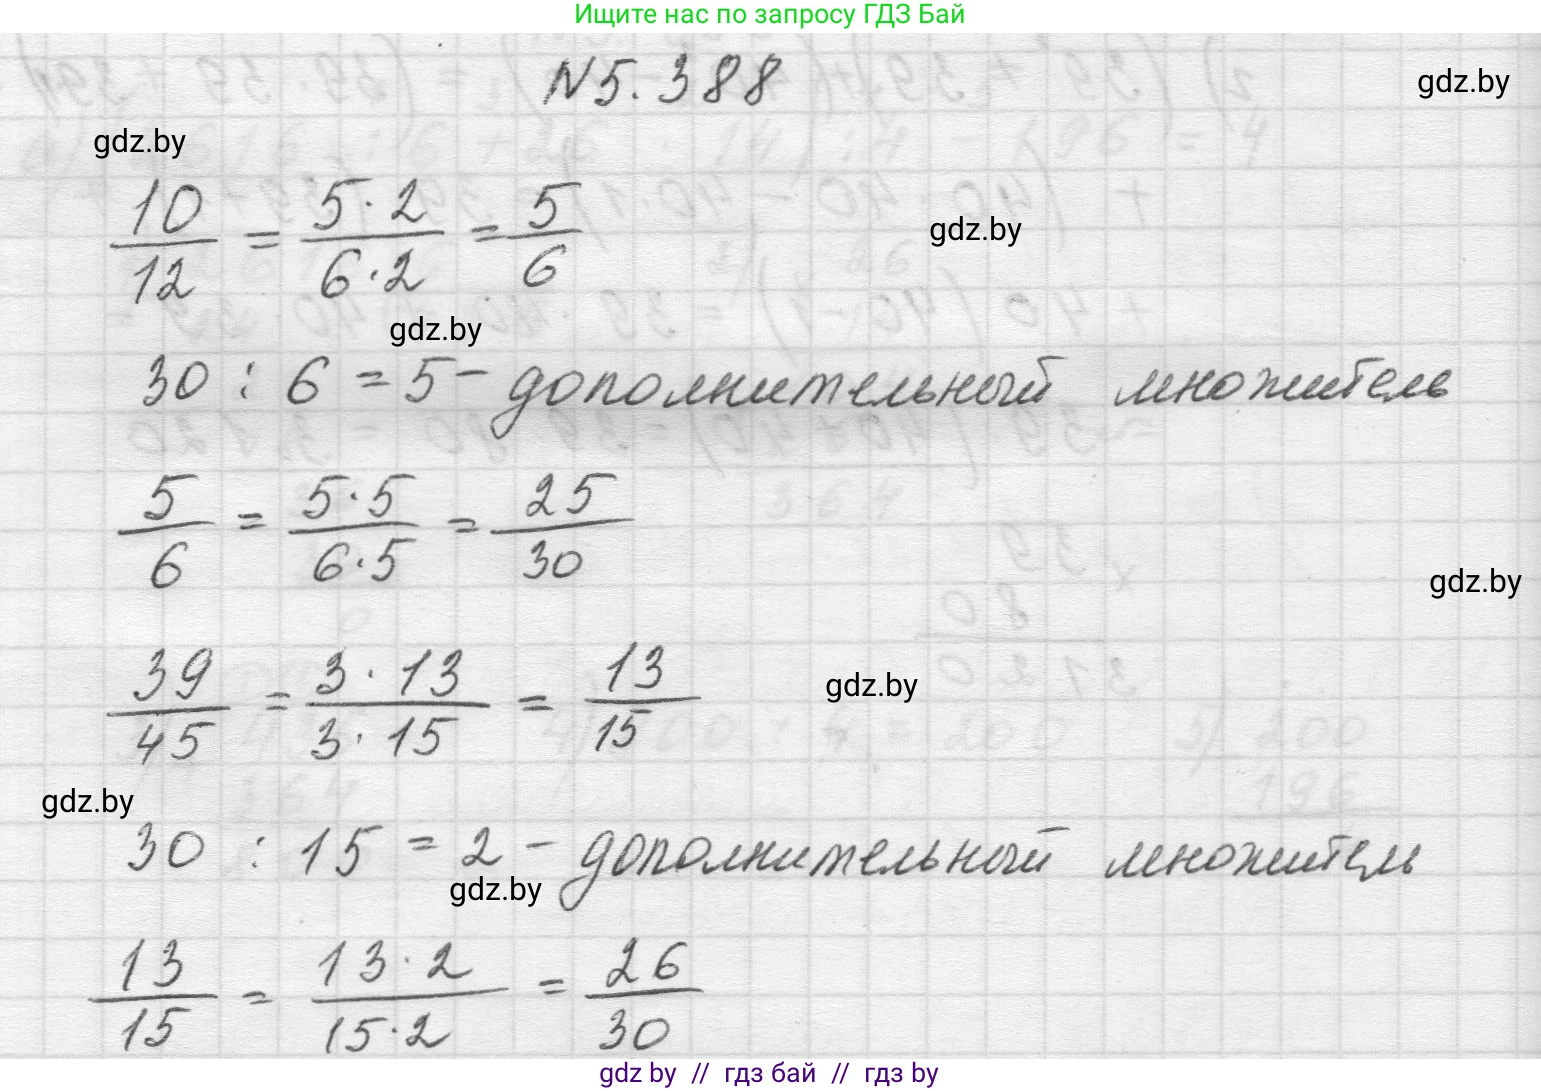 Ищите нас по запросу ГДЗ Бай
N5.388
gdz.by
gdz.by
10/12 = 5·2/6·2 = 5/6
gdz.by
30 : 6 = 5 - дополнительный множитель
5/6 = 5·5/6·5 = 25/30
gdz.by
39/45 = 3·13/3·15 = 13/15
gdz.by
gdz.by
30 : 15 = 2 - дополнительный множитель
gdz.by
13/15 = 13·2/15·2 = 26/30
gdz by // гдз бай // гдз by